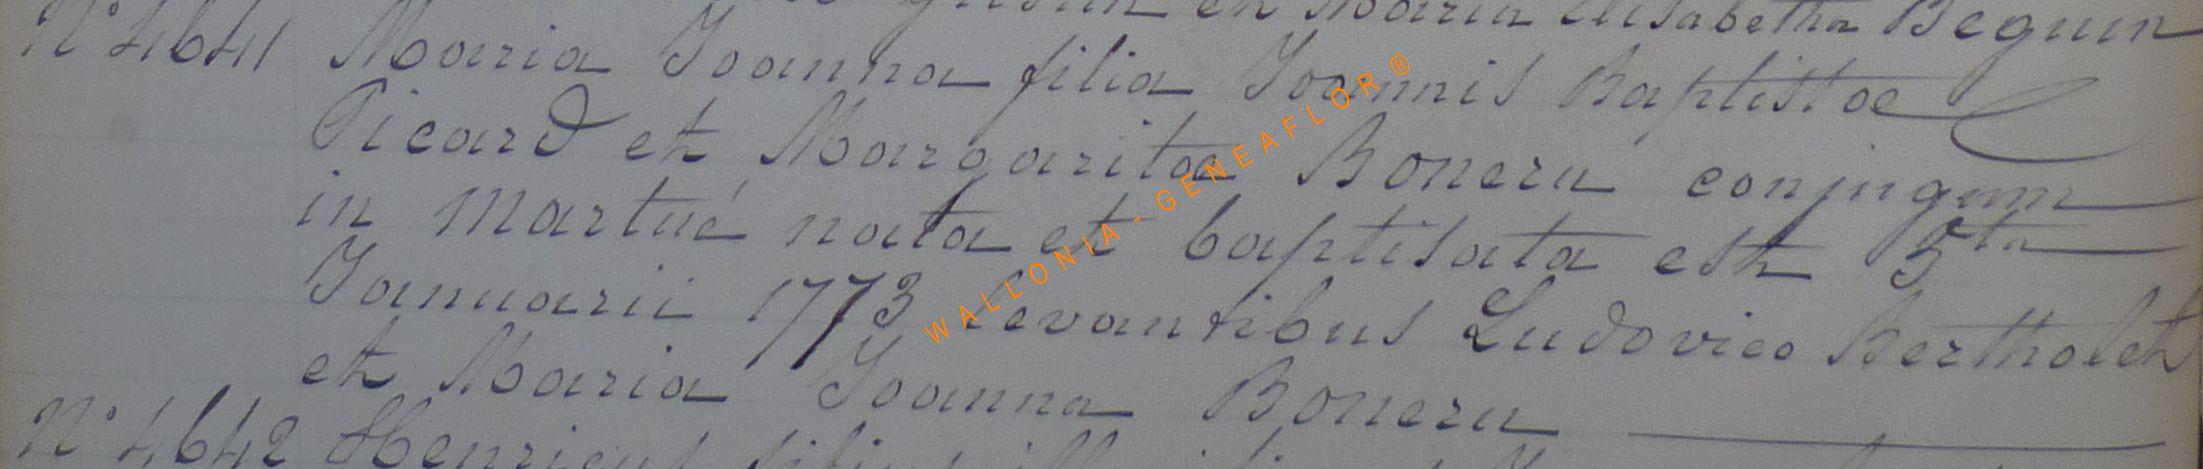 en Maria Elisabetha Beguin
N° 4641 Maria Joanna filia Joannis Baptistae
Picard et Margaritae Boneru conjugum
in Martué nata et baptisata est 5ta
Januarii 1773 Levantibus Ludovico Bertholet
et Maria Joanna Boneru
N° 4642 Henricus
WALLONIA - GENEAFLOR ®